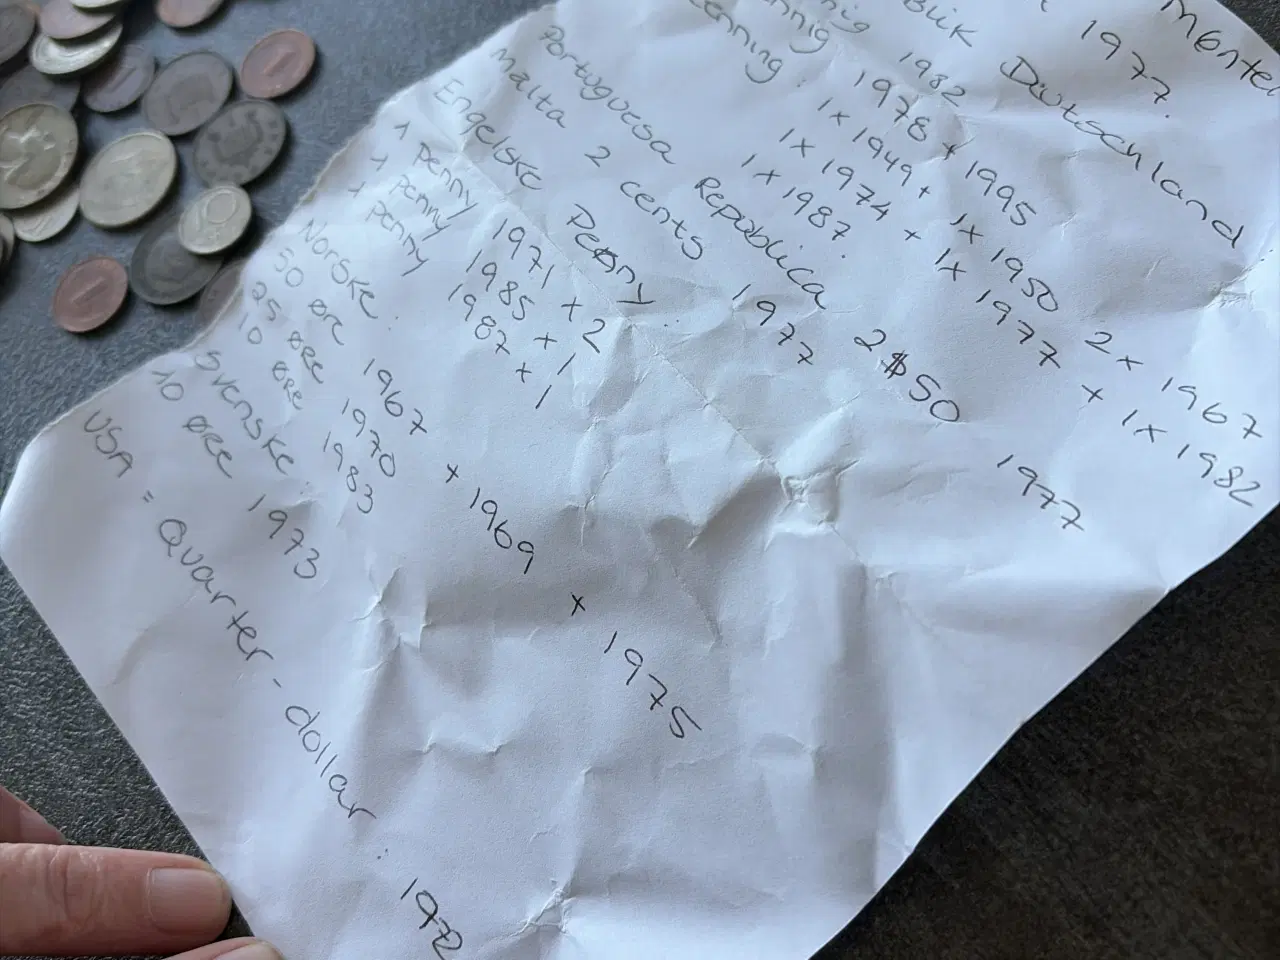 1977.
BLIK Deutschland
1982
nig 1978 + 1995
nnig 1x 1949 + 1x 1950 2x 1967
enning. 1x 1974 + 1x 1977 + 1x 1982
1x 1987.
Portuguesa Republica 2$50 1977
Malta 2 cents 1977
Engelske Penny.
1 Penny 1971 x 2
1 Penny 1985 x 1
1 Penny 1987 x 1
Norske.
50 øre 1967 + 1969 + 1975
25 øre 1970
10 øre 1983
Svenske.
10 øre 1973
USA = Quarter - dollar. 1972